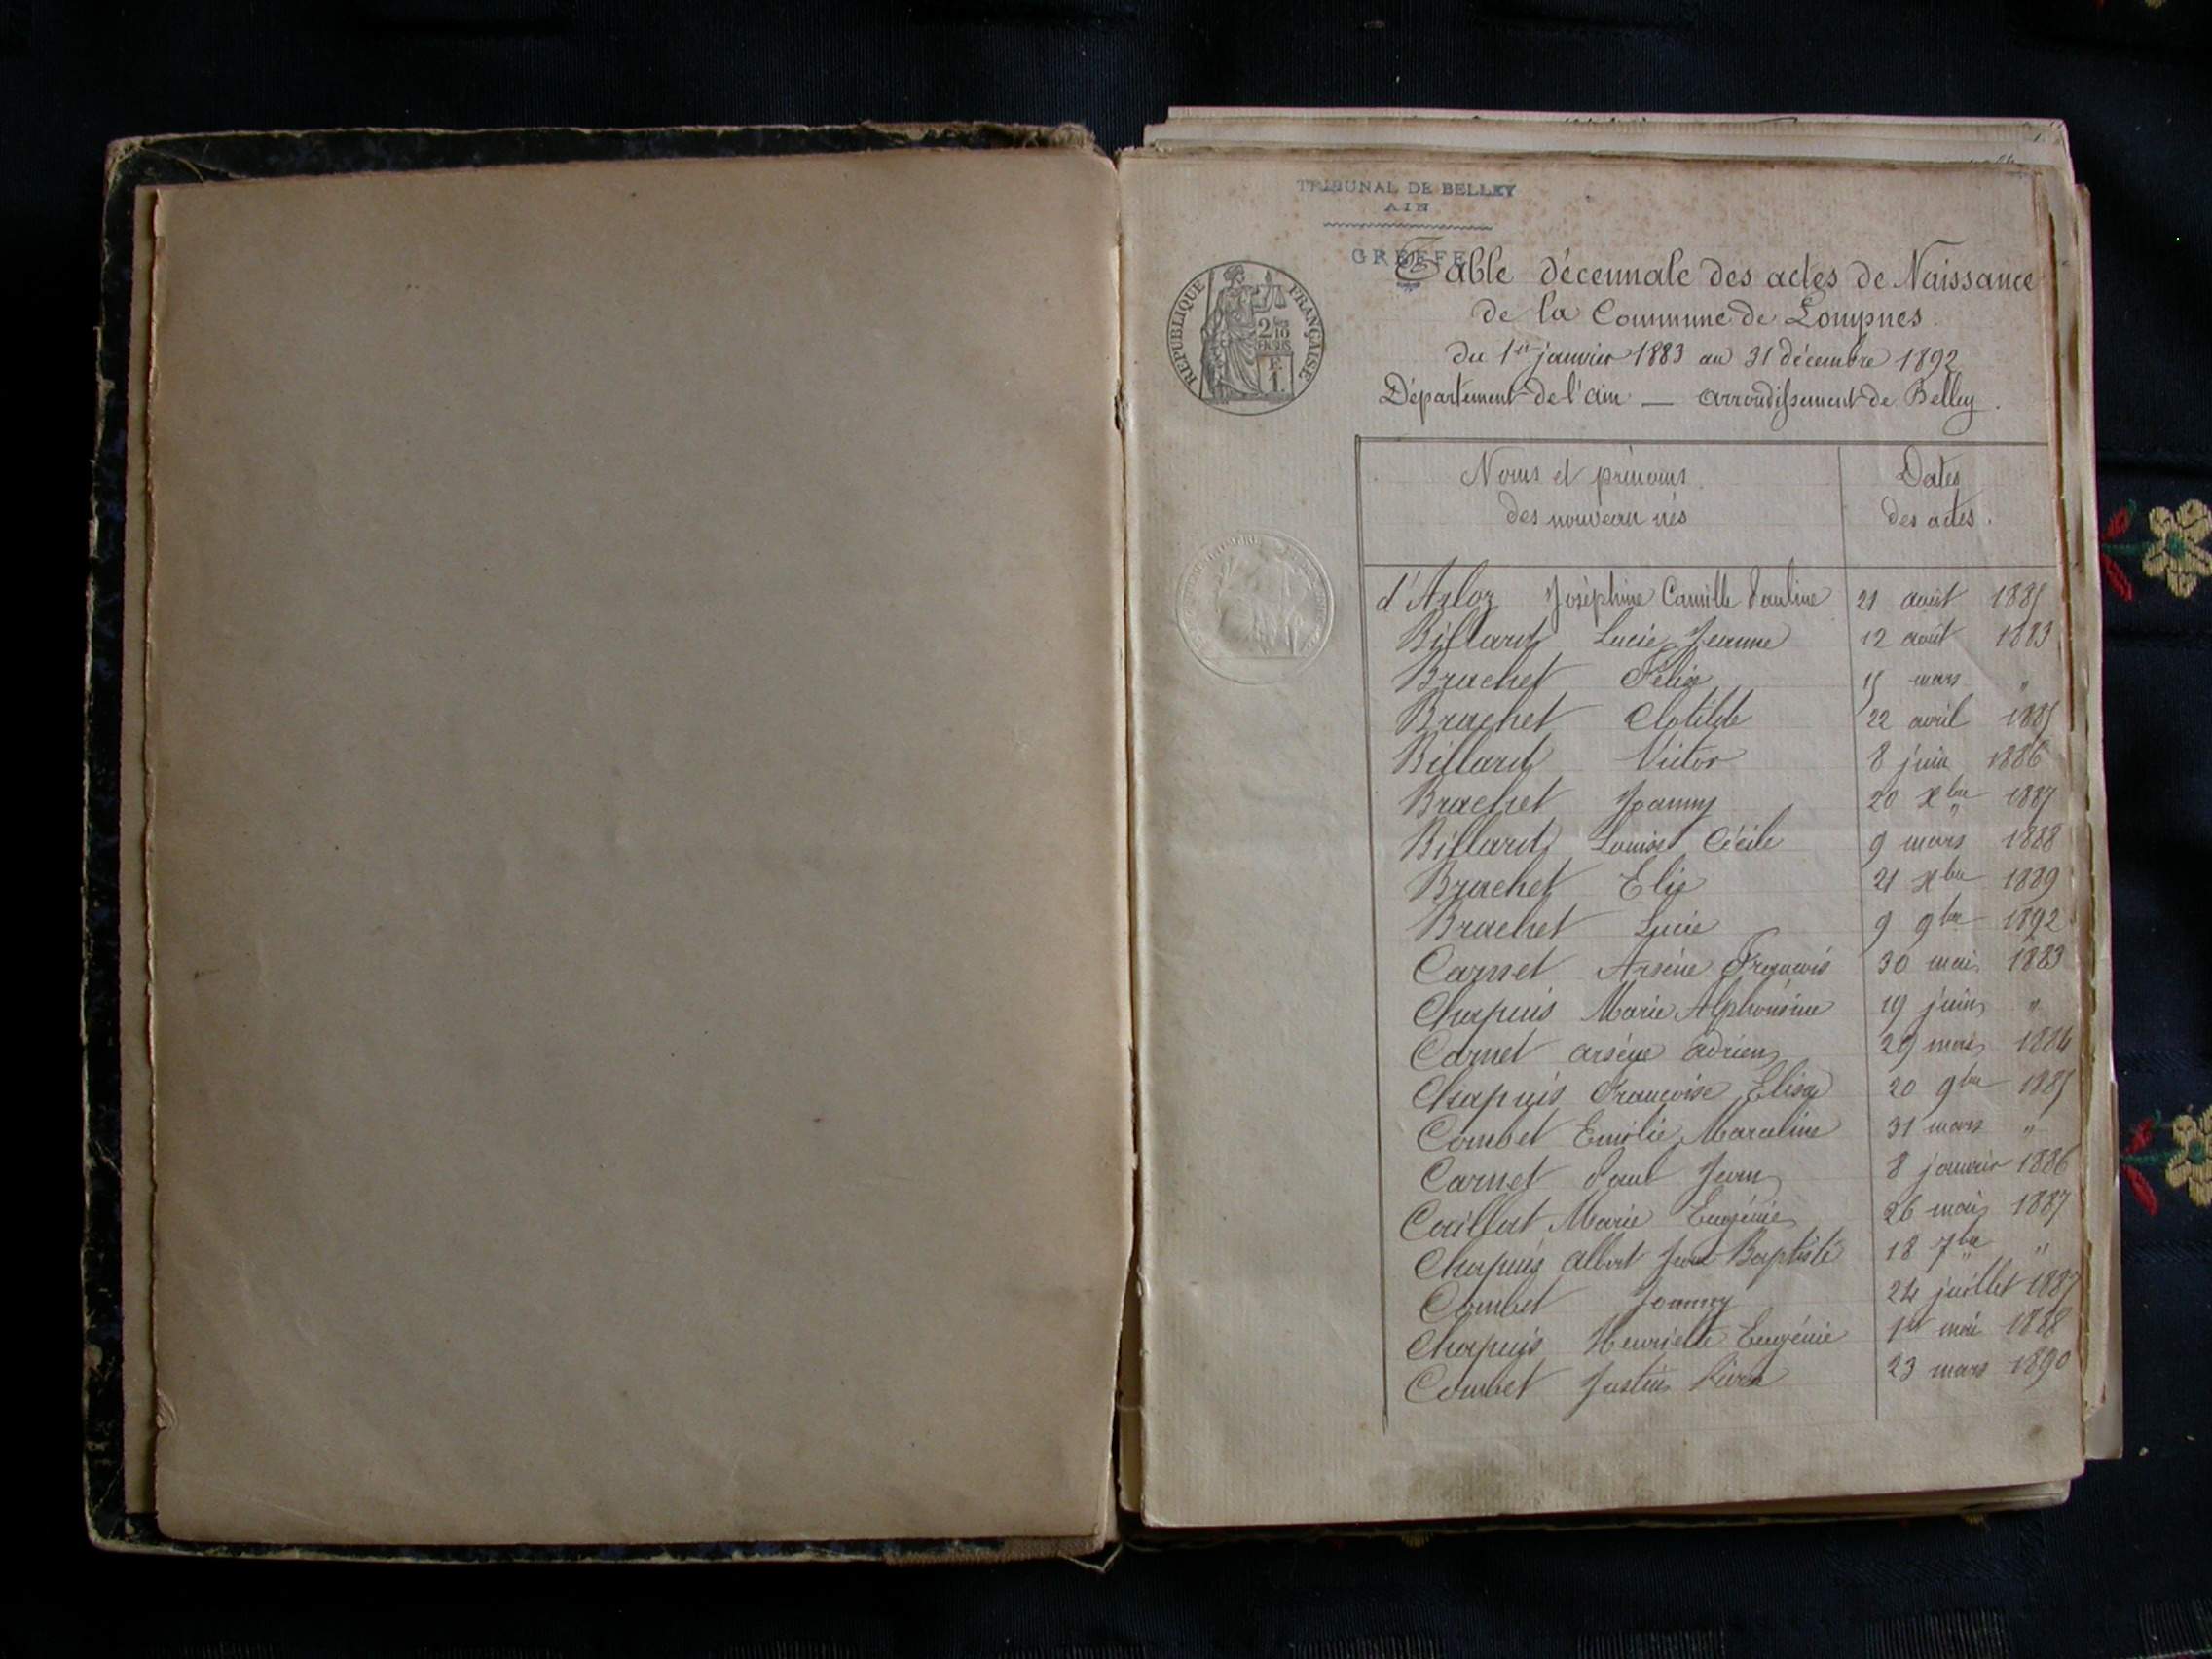 TRIBUNAL DE BELLEY
AIN
GREFFE
Table décennale des actes de Naissance
de la Commune de Lompnes.
du 1er janvier 1883 au 31 décembre 1892
Département de l'ain — arrondissement de Belley.
RÉPUBLIQUE FRANÇAISE
Noms et prénoms
des nouveau nés
Dates
des actes.
d'Arloz Joséphine Camille Pauline 21 août 1885
Billard Lucie Jeanne 12 août 1883
Brachet Félix 15 mars "
Brachet Clotilde 22 avril 1885
Billard Victor 8 juin 1886
Brachet Joanny 20 xbre 1887
Billard Louise Cécile 9 mars 1888
Brachet Elie 21 xbre 1889
Brachet Lucie 9 9bre 1892
Carnet Arsène François 30 mai 1883
Chapuis Marie Alphonsine 19 juin "
Carnet arsène adrien 29 mai 1884
Chapuis Françoise Elisa 20 9bre 1885
Combet Emilie Marceline 31 mars "
Carnet Paul Jean 8 janvier 1886
Caillat Marie Eugénie 26 mai 1887
Chapuis albert Jean Baptiste 18 7bre "
Combet Joanny 24 juillet 1887
Chapuis Henriette Eugénie 1er mai 1888
Combet Justin 23 mars 1890